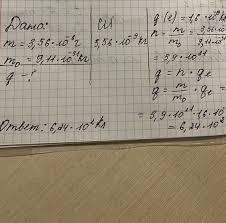 Дано:
m = 3,56 · 10⁻⁶ г
m₀ = 9,11 · 10⁻³¹ кг
q - ?
СИ
3,56 · 10⁻⁹ кг
q(e) = 1,6 · 10
n = m/m₀ = 3,56 · 10 / 9,11 · 10
= 3,9 · 10²¹
q = n · qₑ
q = m/m₀ · qₑ =
= 3,9 · 10²¹ · 1,6 · 10
= 6,24 · 10²
Ответ: 6,24 · 10² Кл